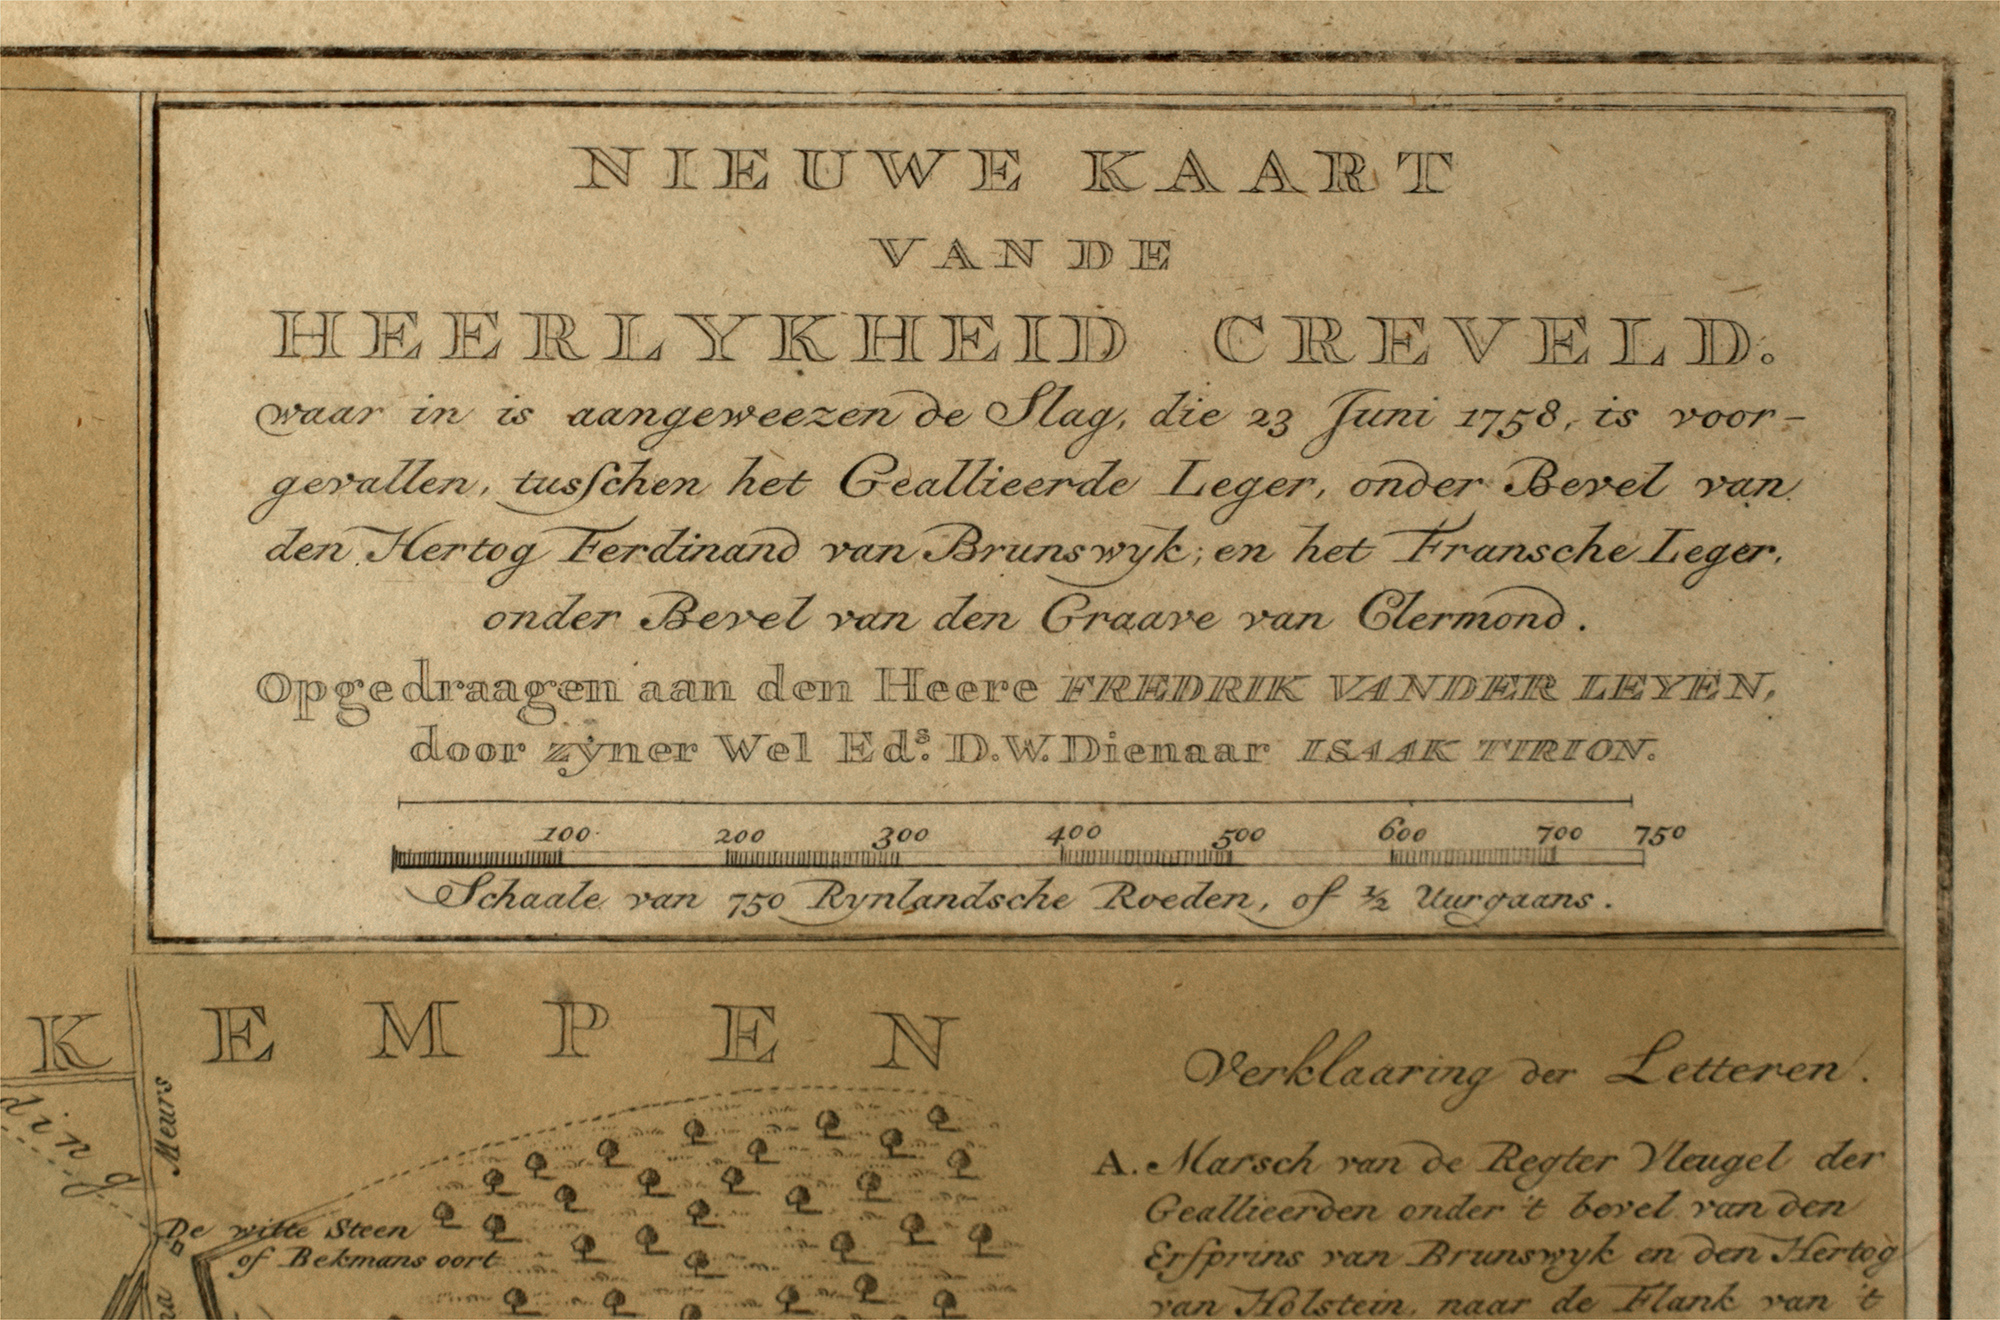 NIEUWE KAART
VAN DE
HEERLYKHEID CREVELD.
waar in is aangeweezen de Slag, die 23 Juni 1758, is voor-
gevallen, tusſchen het Geallieerde Leger, onder Bevel van
den Hertog Ferdinand van Brunswyk; en het Fransche Leger,
onder Bevel van den Graave van Clermond.
Opgedraagen aan den Heere FREDRIK VANDER LEYEN,
door zyner Wel Eds. D.W. Dienaar ISAAK TIRION.
100 200 300 400 500 600 700 750
Schaale van 750 Rynlandsche Roeden, of ½ Uurgaans.
KEMPEN
ding
Meurs
De witte Steen
of Bekmans oort
Verklaaring der Letteren.
A. Marsch van de Regter Vleugel der
Geallieerden onder 't bevel van den
Erfprins van Brunswyk en den Hertog
van Holstein, naar de Flank van 't